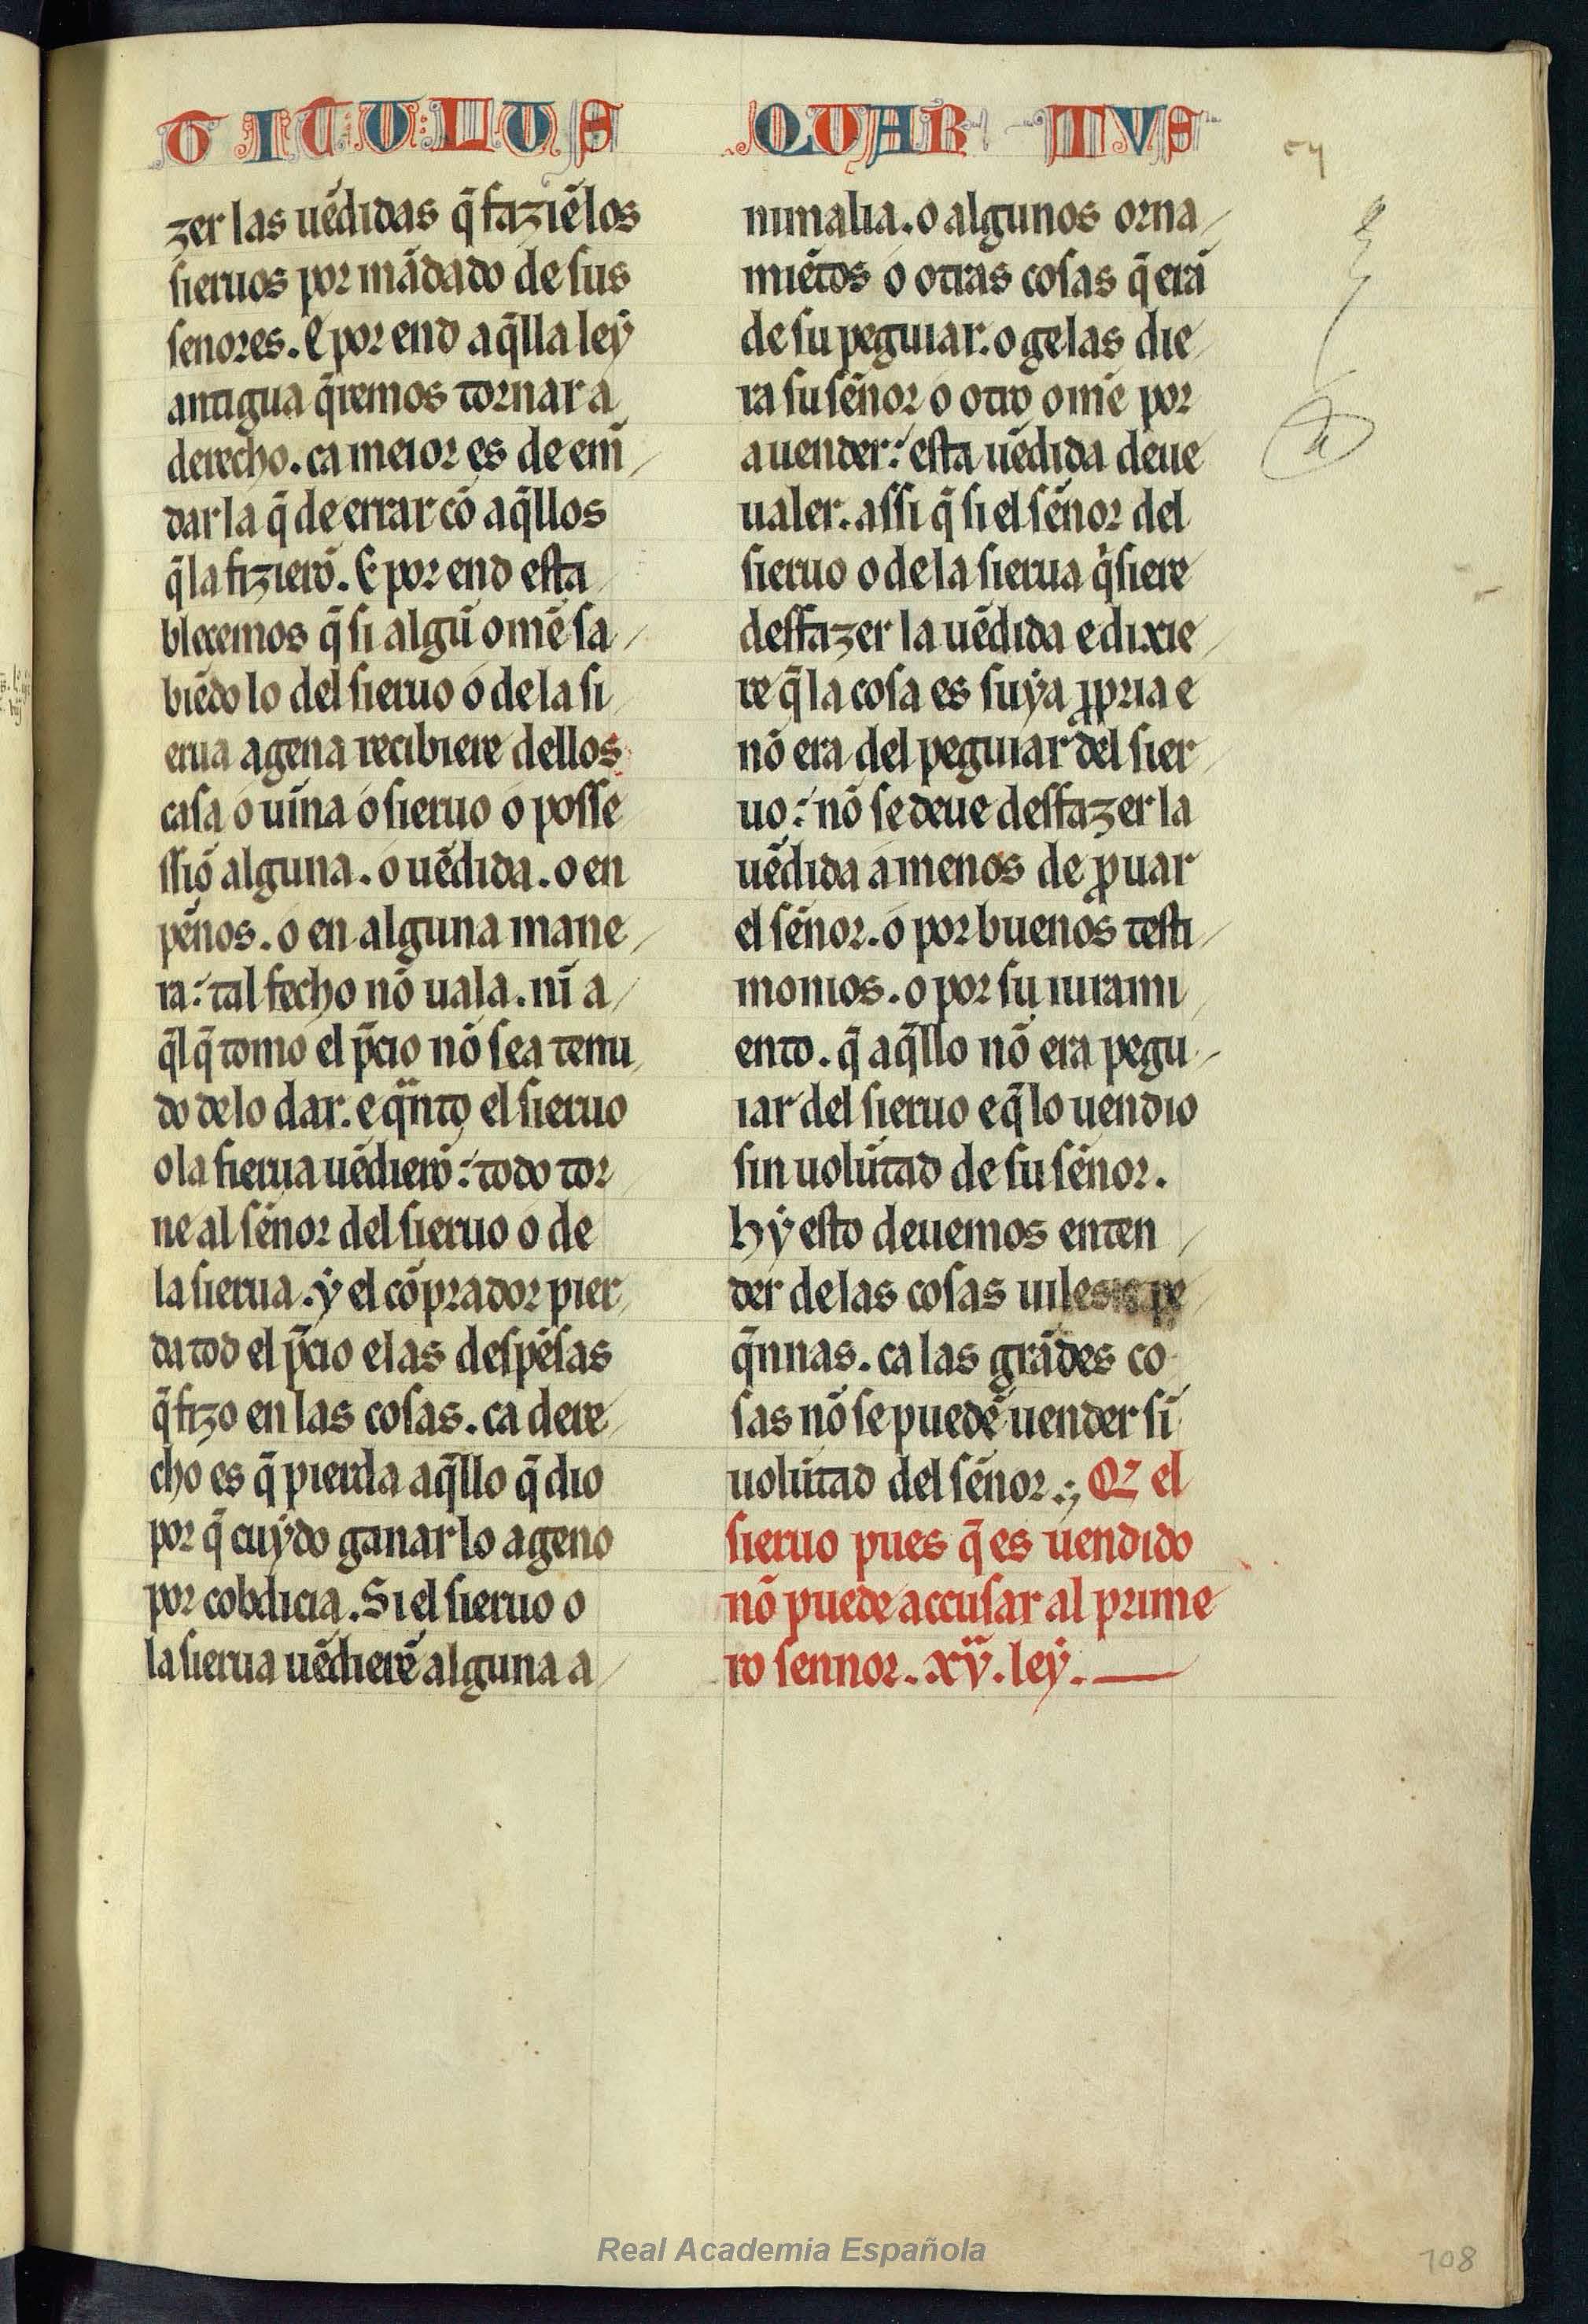 TITULUS QUARTVS
zer las uẽdidas q̃ faziẽ los
sieruos por mãdado de sus
senores. E por end aq̃lla leẏ
antigua q̃remos tornar a
derecho. ca meior es de emẽ
dar la q̃ de errar cõ aq̃llos
q̃ la fizierõ. E por end esta
blecemos q̃ si algũ omẽ sa
biẽdo lo del sieruo o de la si
erua agena recibiere dellos
casa o uĩna o sieruo o posse
ssiõ alguna. o uẽdida. o en
pẽnos. o en alguna mane
ra: tal fecho nõ uala. nĩ a
q̃l q̃ tomo el p̃cio nõ sea tenu
do de lo dar. e q̃nto el sieruo
o la sierua uẽdierõ: todo tor
ne al sẽnor del sieruo o de
la sierua. ẏ el cõprador pier
da tod el p̃cio e las despẽsas
q̃ fizo en las cosas. ca dere
cho es q̃ pierda aq̃llo q̃ dio
por q̃ cuẏdo ganar lo ageno
por cobdicia. Si el sieruo o
la sierua uẽdierẽ alguna a
nimalia. o algunos orna
miẽtos o otras cosas q̃ erã
de su peguiar. o gelas die
ra su sẽnor o otro omẽ por
a uender: esta uẽdida deue
ualer. assi q̃ si el sẽnor del
sieruo o de la sierua q̇siere
desfazer la uẽdida e dixie
re q̃ la cosa es suẏa ꝓpria e
nõ era del peguiar del sier
uo: nõ se deue desfazer la
uẽdida a menos de ꝓuar
el sẽnor. o por buenos testi
monios. o por su iurami
ento. q̃ aq̃llo nõ era pegu
iar del sieruo e q̃ lo uendio
sin uolũtad de su sẽnor.
hẏ esto deuemos enten
der de las cosas uiles pe
q̃nnas. ca las grãdes co
sas nõ se puedẽ uender sĩ
uolũtad del sẽnor.; Qꝛ el
sieruo pues q̃ es uendido
nõ puede accusar al prime
ro sennor. xv̈. leẏ.
Real Academia Española
108